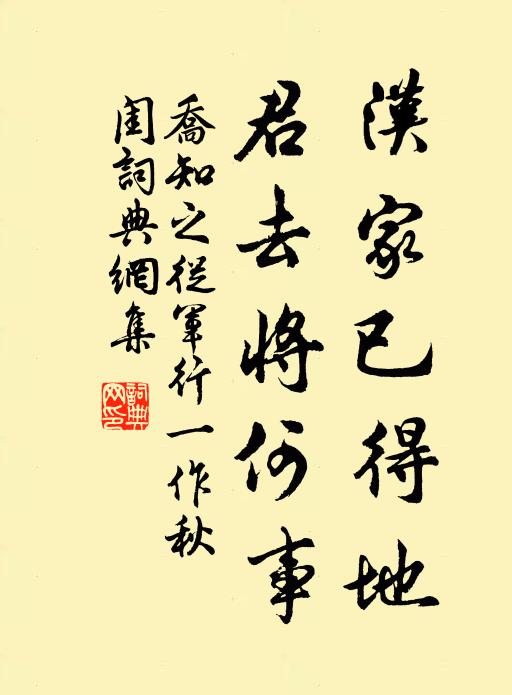 漢家已得地
君去將何事
喬知之從軍行一作秋
閨詞典網集
詞典網印